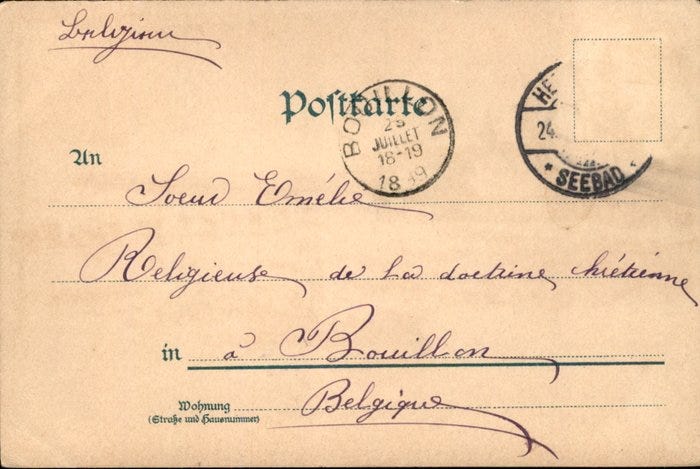 Belgien
Postkarte
BOUILLON
25
JUILLET
18-19
1899
HE
24.
* SEEBAD *
An
Soeur Emélie
Religieuse de la doctrine chrétienne
in à Bouillon
Wohnung
(Straße und Hausnummer)
Belgique